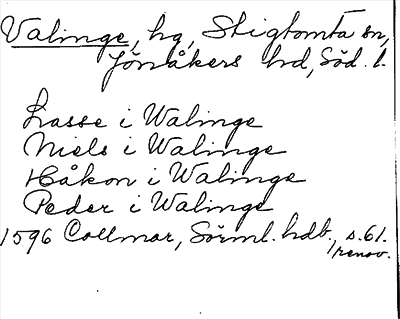 Valinge, hg, Stigtomta sn,
Jönåkers hd, Söd. l.
Lasse i Walinge
Niels i Walinge
Håkon i Walinge
Peder i Walinge
1596 Collmar, Sörml. hdb., s. 61.
/renov.